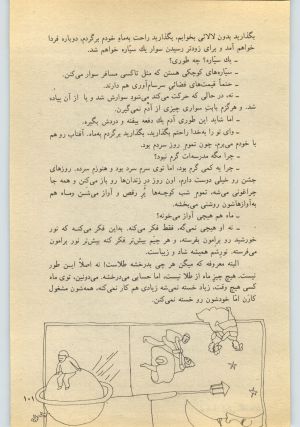 بگذارید بدون لالائی بخوابم، بگذارید راحت به‌ماهِ خودم برگردم، دوباره فردا
خواهم آمد و برای زودتر رسیدن سوار یك سیّاره خواهم شد.
ـ یك سیّاره؟ چه طوری؟
ـ سیّاره‌های کوچکی هستن که مثل تاکسی مسافر سوار می‌کنن.
ـ حتماً قیمت‌های فضائی سرسام‌آوری هم دارند.
ـ نه، در حالی که حرکت می‌کند می‌شود سوارش شد و یا از آن پیاده
شد. و هرگزم بابتِ سواری چیزی از آدم نمی‌گیرن.
ـ اما شاید این طوری آدم یك دفعه بیفته و دردش بگیره.
ـ وای تو را به‌خدا راحتم بگذارید، بگذارید برگردم به‌ماه. آفتاب رو هم
خاموش کردم، چون تمومِ روز سردم بود.
ـ چرا مگه مدرسه‌ات گرم نبود؟
ـ چرا یه کمی گرم بود، اما توی سرم سرد بود و هنوزم سرده. روزهای
جشن رو خیلی دوست دارم، اون روز درِ زندان‌ها رو باز می‌کنن و همه جا
چراغونی می‌شه، تمومِ شب کوچه‌ها پُر رقص و آواز می‌شن و ماه هم
به‌آوازهاشون روشنی می‌بخشه.
ـ ماه هم هیچی آواز می‌خونه؟
ـ نه او هیچی نمی‌گه، فقط فکر می‌کنه. به‌این فکر می‌کنه که نورِ
خورشید رو برامون بفرسته، و هر چیم بیش‌تر فکر کنه بیش‌تر نور برامون
می‌فرسته. نورشم همیشه شاد و زیباست.
البته معروفه که میگن هر چی بدرخشه طلاست! نه اصلاً این طور
نیست. هیچ چیزِ ماه از طلا نیست، اما حسابی می‌درخشه. می‌دونین، توی ماه
کسی هیچ وقت، زیاد خسته نمی‌شه زیادی هم کار نمی‌کنه، همه‌شون مشغول
کارَن امّا خودشون رو خسته نمی‌کنن.
۱۰۱